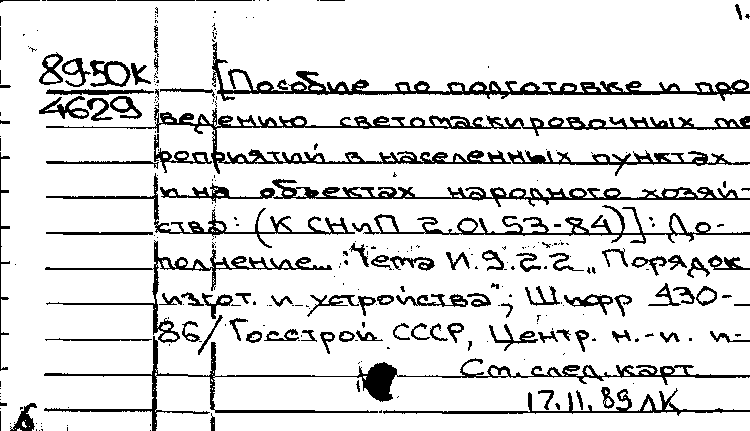 1.
8950к [Пособие по подготовке и про
4629
ведению светомаскировочных ме
роприятий в населенных пунктах
и на объектах народного хозяй-
ства: (К СНиП 2.01.53-84)]: До-
полнение... : Тема И.9.2.2 „Порядок
изгот. и устройства"; Шифр 430-
86/ Госстрой СССР, Центр. н.-и. и-
См. след. карт
17.11.89 ЛК